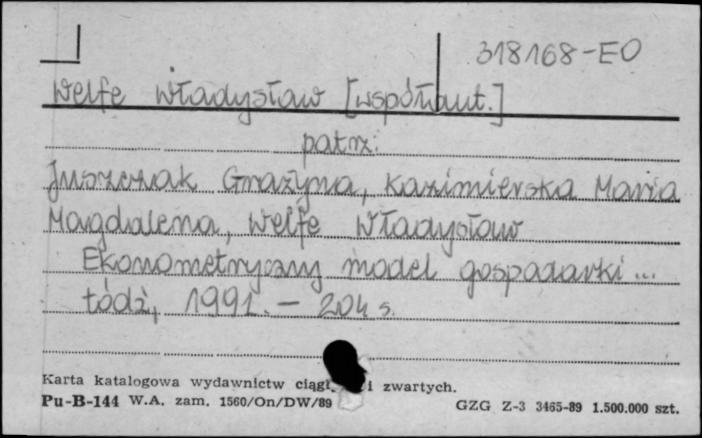 318168-EO
Welfe Władysław [współaut.]
patrz:
Juszczak Grażyna, Kazimierska Maria
Magdalena, Welfe Władysław
Ekonometryczny model gospodarki ...
Łódź, 1991. - 204 s.
Karta katalogowa wydawnictw ciągł. i zwartych.
Pu-B-144 W.A. zam. 1560/On/DW/89
GZG Z-3 3465-89 1.500.000 szt.